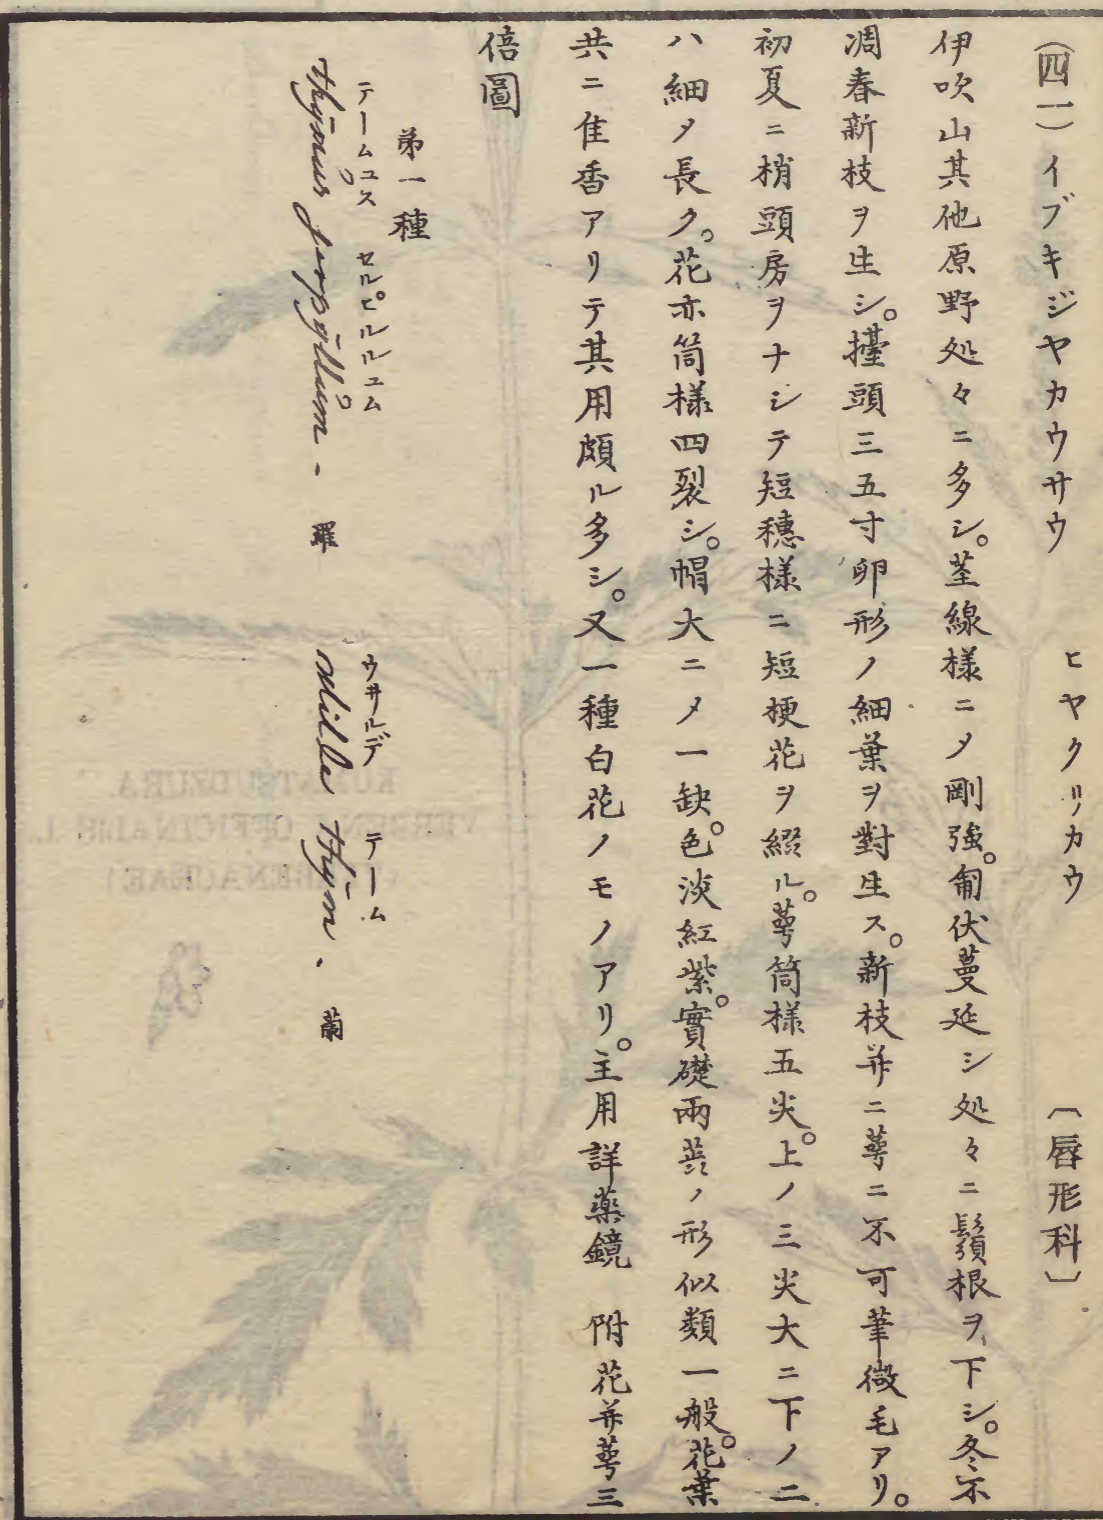 (四一)イブキジヤカウサウ　ヒヤクリカウ　〔唇形科〕
伊吹山其他原野処々ニ多シ。莖線様ニメ剛強。匍伏蔓延シ処々ニ鬚根ヲ下シ。冬不
凋春新枝ヲ生シ。擡頭三五寸卵形ノ細葉ヲ對生ス。新枝并ニ萼ニ不可筆微毛アリ。
初夏ニ梢頭房ヲナシテ短穗様ニ短梗花ヲ綴ル。萼筒様五尖。上ノ三尖大ニ下ノ二
ハ細メ長ク。花亦筒様四裂シ。帽大ニメ一缺色淡紅紫。實礎兩蕋ノ形似類一般。花葉
共ニ佳香アリテ其用頗ル多シ。又一種白花ノモノアリ。主用詳薬鏡　附花并萼三
倍圖
第一種
テームュス　セルピルルュム
Thymus serpyllum. 羅
ウヰルデ　テーム
wilde Thym. 蘭
KUMATSUDZURA.
VERBENA OFFICINALIS L.
(VERBENACEAE)